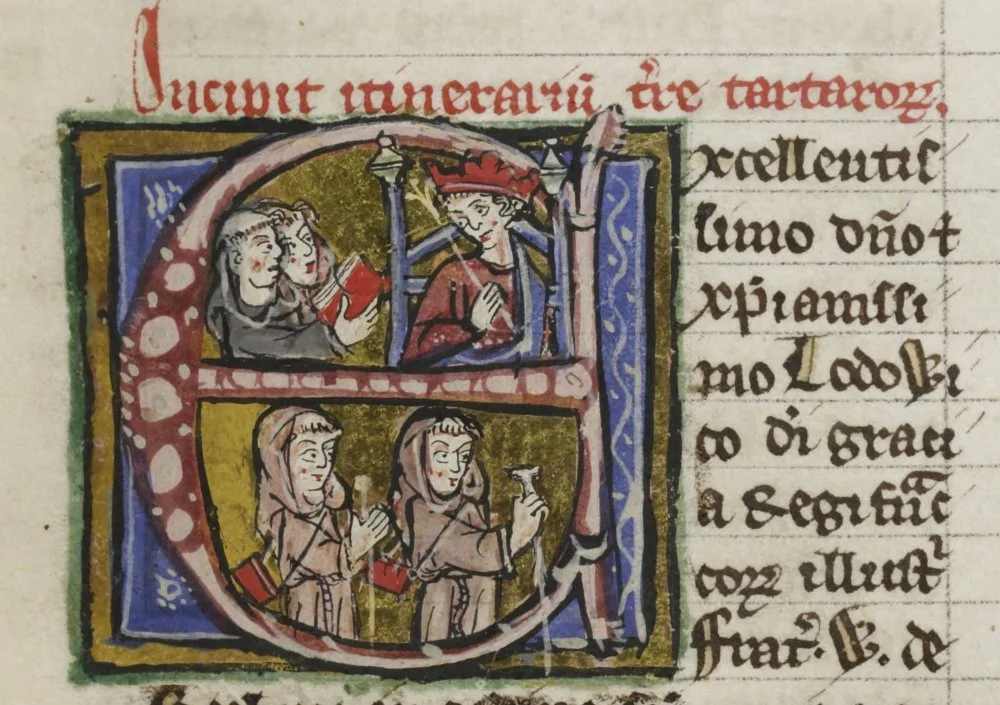 Incipit itinerariū t̄re tartaroꝝ.
Excellentis
simo dn̄o ⁊
xp̄ianissi
mo Lodowi
co dī graci
a Regi frāc
coꝝ illustr̄
ffrat̓. W. de